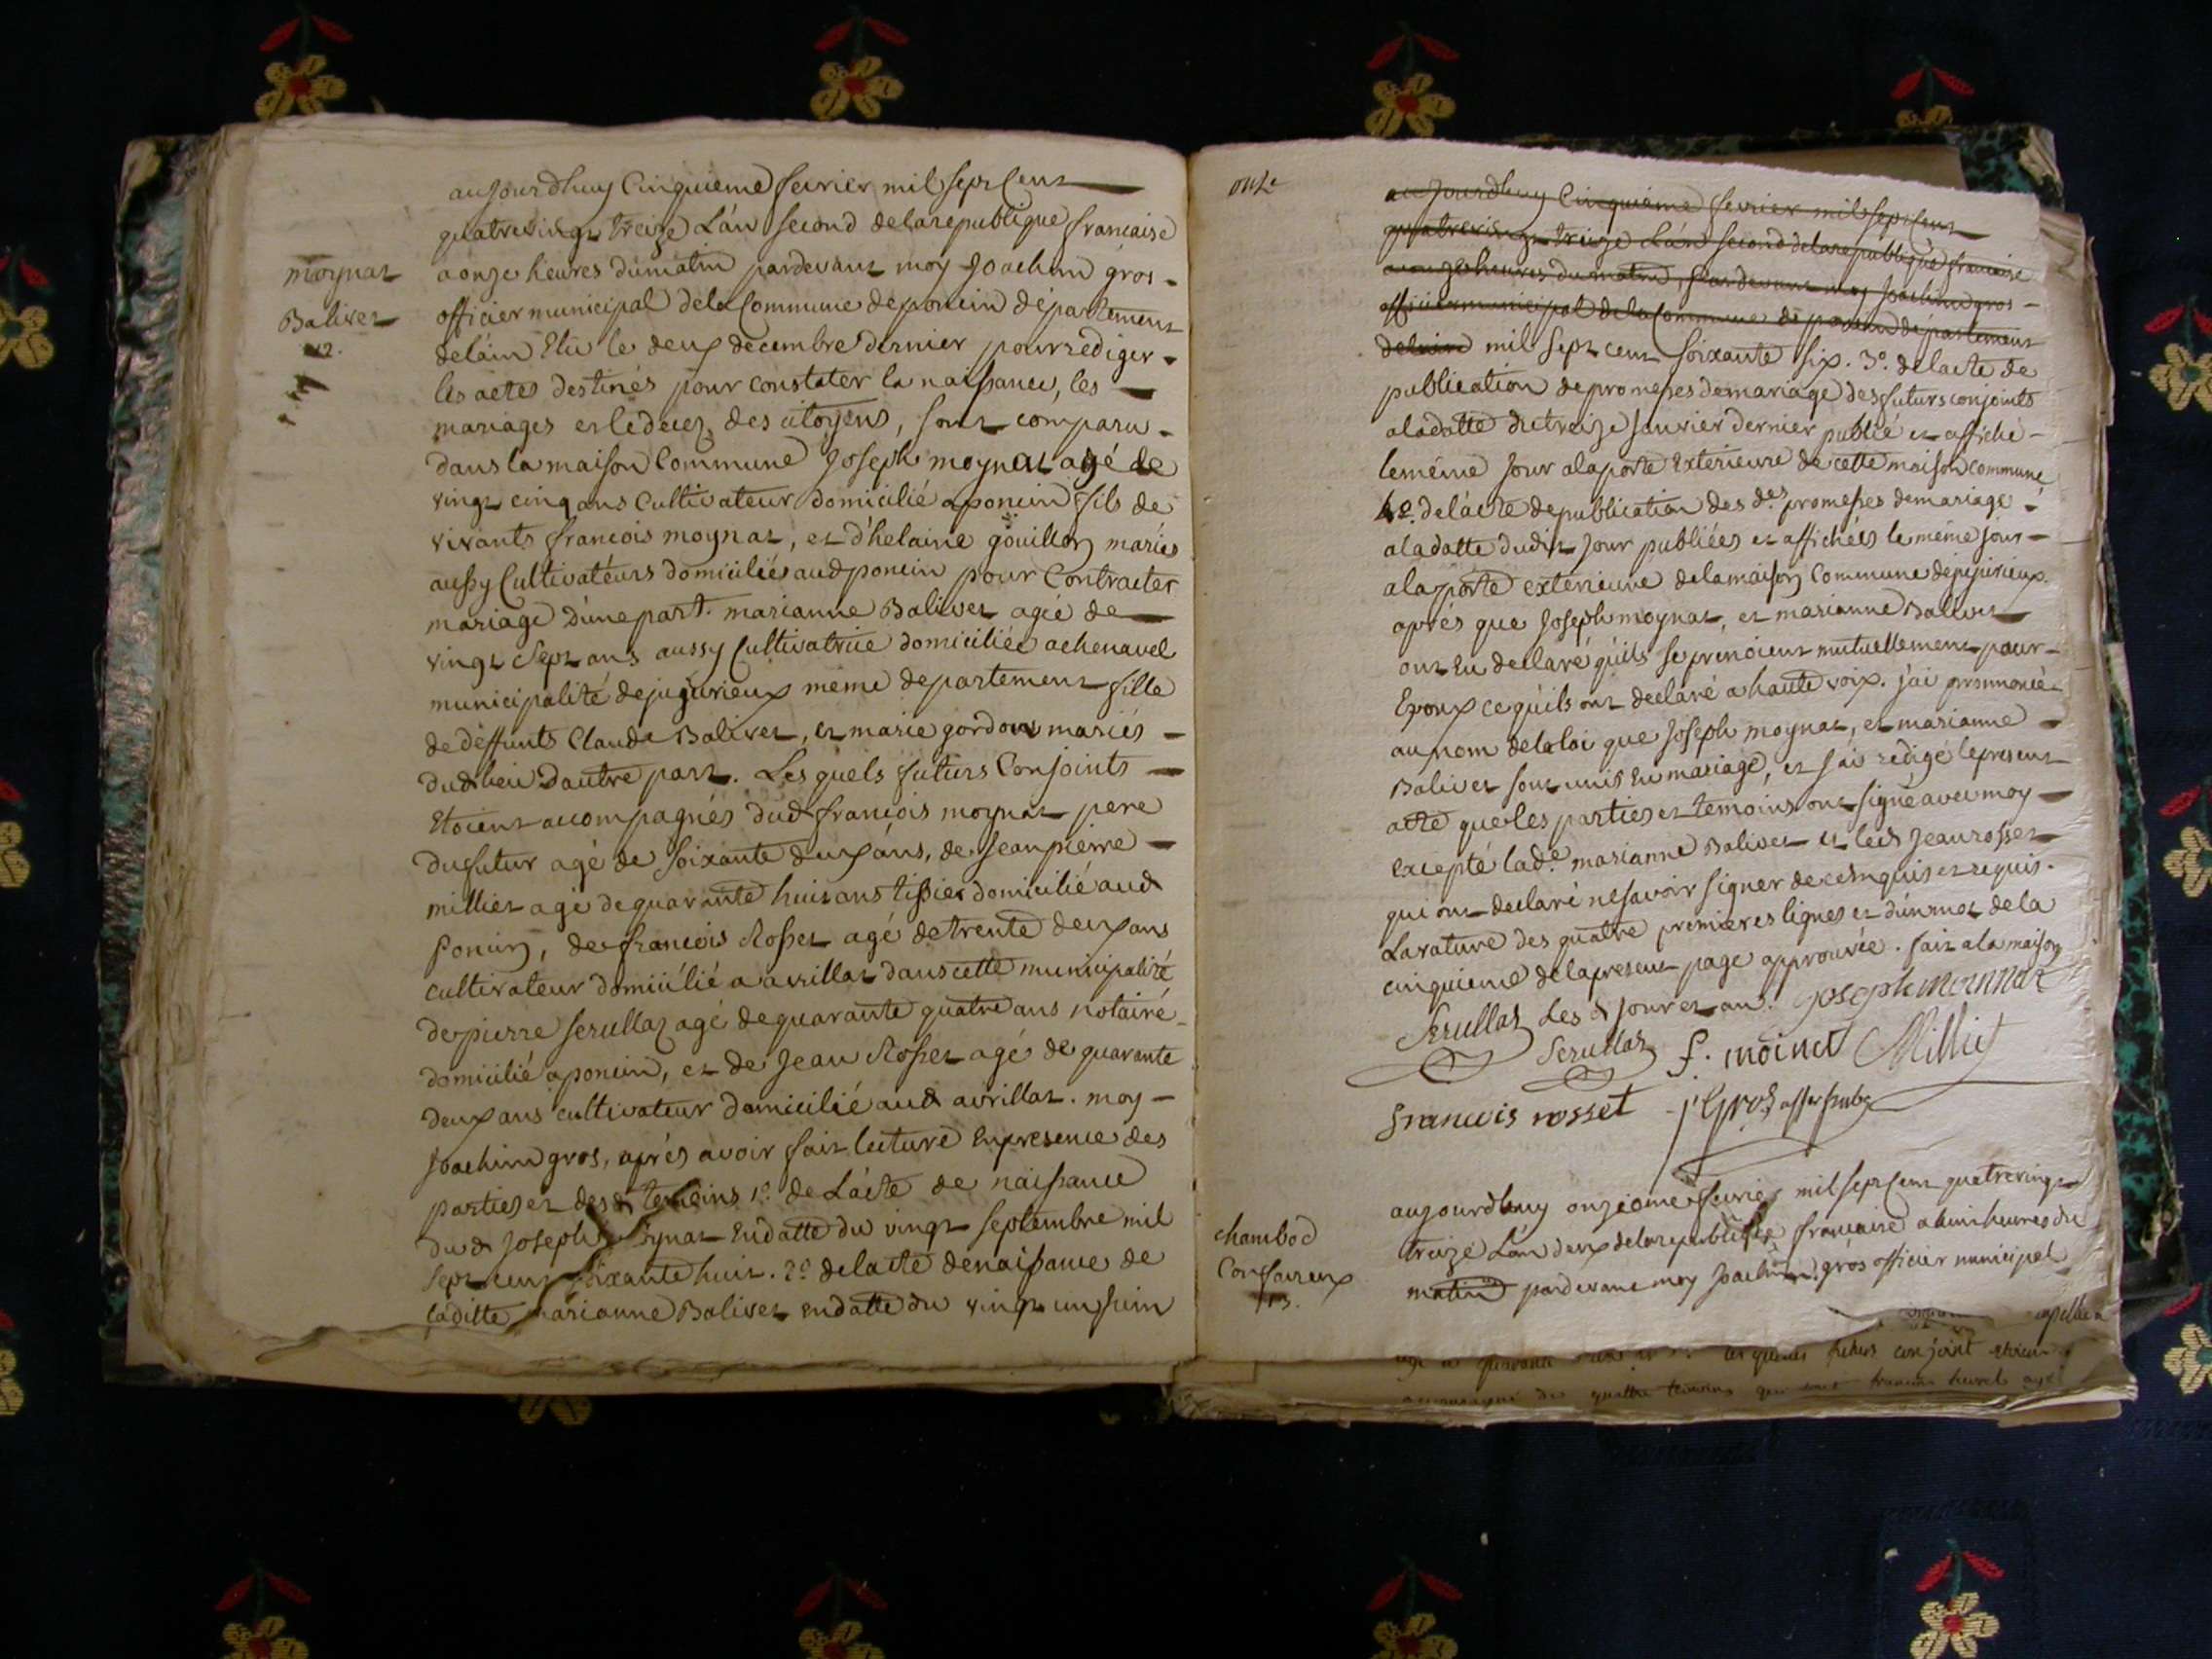 moynat
Balivet
12.
aujourdhuy Cinquieme fevrier mil sept Cent
quatrevingt treize L'an second delarepublique francaise
a onze heures dumatin pardevant moy Joachim gros
officier municipal dela Commune deponcin département
deláin Elu le deux decembre dernier pour rédiger
les actes destinés pour constater la naissance, les
mariages et le decez des citoyens, sont comparu
dans la maison Commune Joseph moynat agé de
vingt cinq ans Cultivateur domicilié aponcin fils de
vivants francois moynat, et d'helaine gouillon mariés
aussy Cultivateurs domiciliés audponcin pour Contracter
mariage d'une part. marianne Balivet agée de
vingt Sept ans aussy Cultivatrice domiciliée achenavel
municipalité dejujurieux meme departement fille
de déffunts Claude Balivet, et marie gordon mariés
dudlieu d'autre part. Les quels futurs Conjoints
Etoient accompagnés dud francois moynat pere
du futur agé de soixante deux ans, de Jean pierre
milliet agé de quarante huit ans tissier domicilié aud
Poncin, de francois Rosset agé de trente deux ans
cultivateur domicilié a avrillat dans cette municipalité
de pierre serullaz agé de quarante quatre ans notaire
domicilié aponcin, et de Jean Rosset agé de quarante
deux ans cultivateur domicilié aud avrillat. moy
Joachim gros, aprés avoir fait lecture En presence des
parties et des d temoins 1.º de L'acte de naissance
dud Joseph moynat En datte du vingt septembre mil
sept cent soixante huit. 2.º delacte denaissance de
laditte marianne Balivet en datte du vingt un juin
onze
aujourdhuy Cinquieme fevrier mil sept Cent
quatrevingt treize L'an second delarepublique francaise
a onze heures du matin, pardevant moy Joachim gros
officier municipal dela Commune de poncin département
delain mil sept cent soixante six. 3.º delacte de
publication de promesses demariage des futurs conjoints
aladatte du treize janvier dernier publié et affiché
lemême Jour alaporte Exterieure de cette maison commune
4.º delácte depublication des d.es promesses demariage
aladatte dudit Jour publiées et affichées le même jour
alaporte exterieure delamaison Commune dejujurieux.
aprés que Joseph moynat, et marianne Balivet
ont Eu declaré qu'ils se prenoient mutuellement pour
Epoux ce qu'ils ont declaré a haute voix. j'ai prononcé
au nom dela loi que Joseph moynat, et marianne
Balivet sont unis En mariage, et j'ai redigé le present
acte que les parties et temoins ont signé avec moy
excepté lad.e marianne Balivet et led Jean rosset
qui ont declaré ne savoir signer de ce enquis et requis.
La rature des quatre premieres lignes et d'un mot de la
cinquieme delapresent page approuvée. fait a la maison
Les d jour et an. joseph moinnat
Serullaz Serullaz f. moinat Milliet
francois rosset j Gros
chambod
Confaireux
13.
aujourdhuy onzieme fevrier mil sept Cent quatrevingt
treize L'an deux delarepublique francaise a huit heures du
matin pardevant moy Joachim gros officier municipal
les quels futurs conjoint etoient
accompagné de quattre temoins qui sont